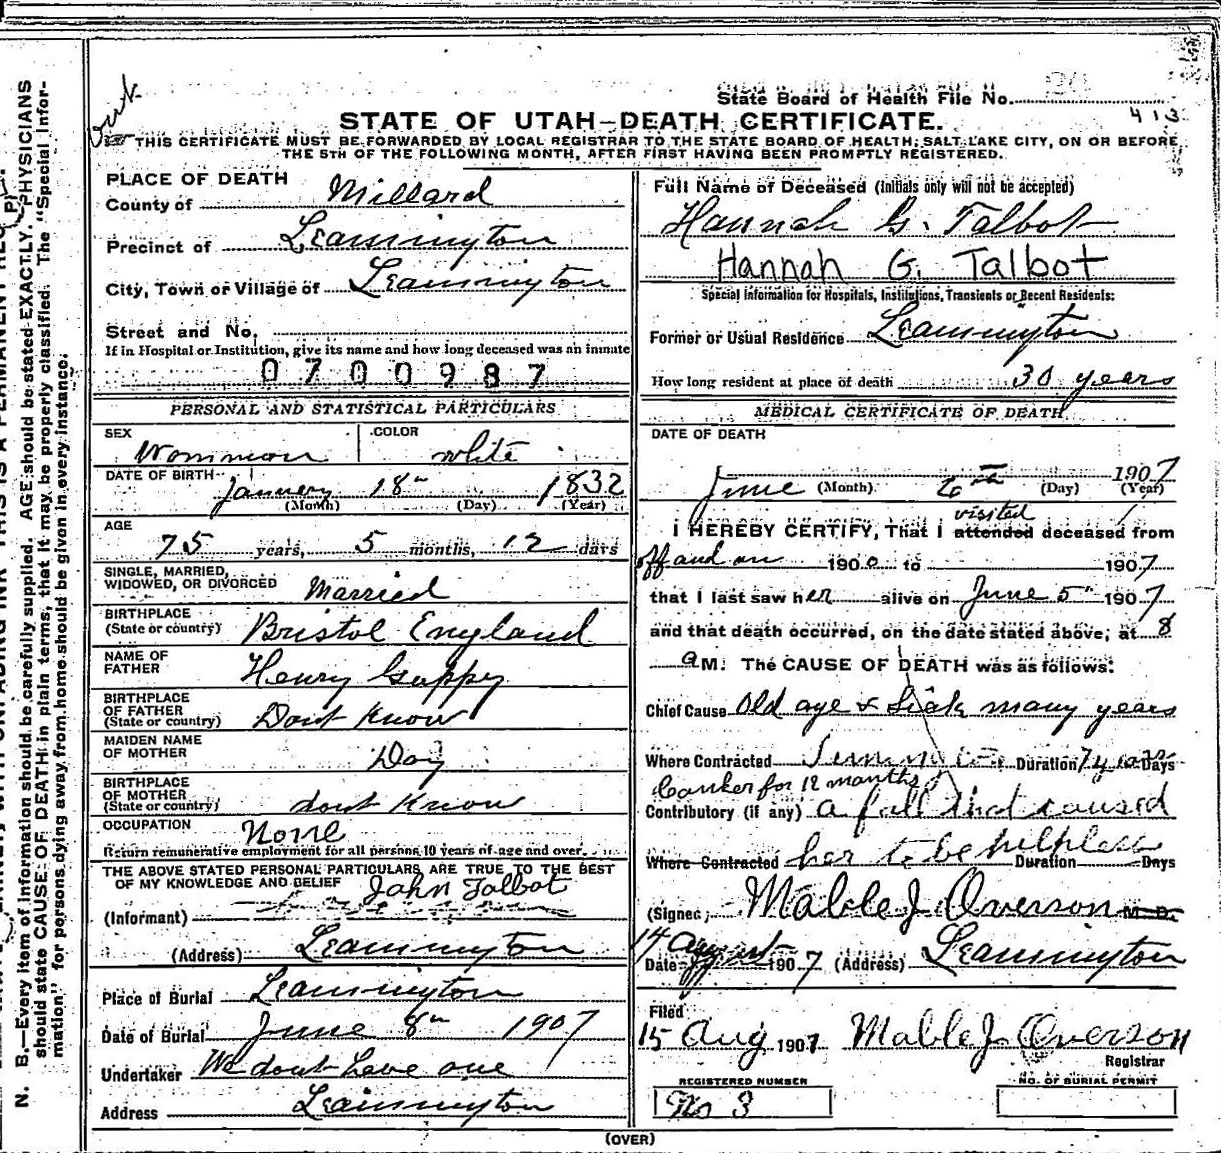 State Board of Health File No.
413
STATE OF UTAH—DEATH CERTIFICATE.
THIS CERTIFICATE MUST BE FORWARDED BY LOCAL REGISTRAR TO THE STATE BOARD OF HEALTH, SALT LAKE CITY, ON OR BEFORE
THE 5TH OF THE FOLLOWING MONTH, AFTER FIRST HAVING BEEN PROMPTLY REGISTERED.
PLACE OF DEATH
County of Millard
Precinct of Leamington
City, Town or Village of Leamington
Street and No.
If in Hospital or Institution, give its name and how long deceased was an inmate
0700987
PERSONAL AND STATISTICAL PARTICULARS
SEX COLOR
Womman white
DATE OF BIRTH
Jannery 18th 1832
(Month) (Day) (Year)
AGE
75 years, 5 months, 12 days
SINGLE, MARRIED,
WIDOWED, OR DIVORCED Married
BIRTHPLACE
(State or country) Bristol England
NAME OF
FATHER Henry Guppy
BIRTHPLACE
OF FATHER
(State or country) Dont Know
MAIDEN NAME
OF MOTHER Day
BIRTHPLACE
OF MOTHER
(State or country) dont Know
OCCUPATION None
Return remunerative employment for all persons 10 years of age and over.
THE ABOVE STATED PERSONAL PARTICULARS ARE TRUE TO THE BEST
OF MY KNOWLEDGE AND BELIEF John Talbot
(Informant)
(Address) Leamington
Place of Burial Leamington
Date of Burial June 8th 1907
Undertaker We dont have one
Address Leamington
Full Name of Deceased (Initials only will not be accepted)
Hannah G. Talbot
Hannah G. Talbot
Special Information for Hospitals, Institutions, Transients or Recent Residents:
Former or Usual Residence Leamington
How long resident at place of death 30 years
MEDICAL CERTIFICATE OF DEATH
DATE OF DEATH
June 6th 1907
(Month) (Day) (Year)
visited
I HEREBY CERTIFY, That I attended deceased from
off and on 1900 to 1907
that I last saw her alive on June 5th 1907
and that death occurred, on the date stated above, at 8
a M. The CAUSE OF DEATH was as follows:
Chief Cause Old age & Sick many years
Where Contracted Duration Days
Canker for 12 months
Contributory (if any) a fall that caused
Where Contracted her to be helpless Duration Days
(Signed) Mable J Overson M. D.
14 August
Date 1907 (Address) Leamington
Filed
15 Aug 1907 Mable J. Overson
Registrar
REGISTERED NUMBER NO. OF BURIAL PERMIT
No 3
(OVER)
N. B.—Every item of information should be carefully supplied. AGE should be stated EXACTLY. PHYSICIANS
should state CAUSE OF DEATH in plain terms, that it may be properly classified. The "Special Infor-
mation" for persons dying away from home should be given in every instance.